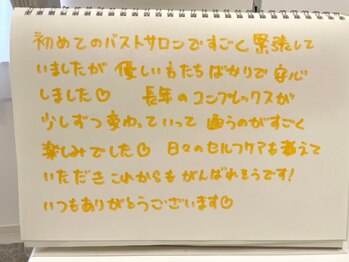 初めてのバストサロンですごく緊張して
いましたが 優しい方たちばかりで安心
しました♡ 長年のコンプレックスが
少しずつ変わっていって 通うのがすごく
楽しみでした♡ 日々のセルフケアも教えて
いただき これからも がんばれそうです!
いつもありがとうございます♡